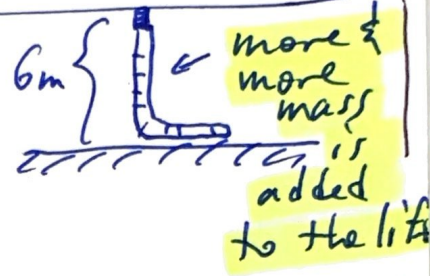 6m
more &
more
mass
is
added
to the lift